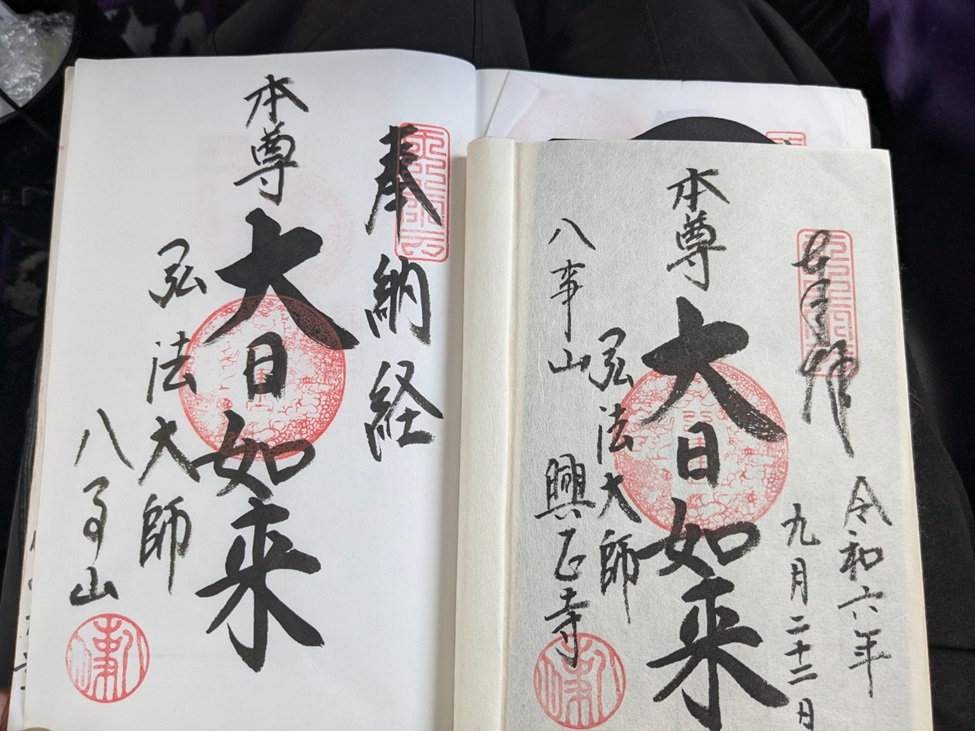 奉拝
令和六年
九月二十二日
本尊 大日如来
弘法大師
八事山 興正寺
奉納経
本尊 大日如来
弘法大師
八事山